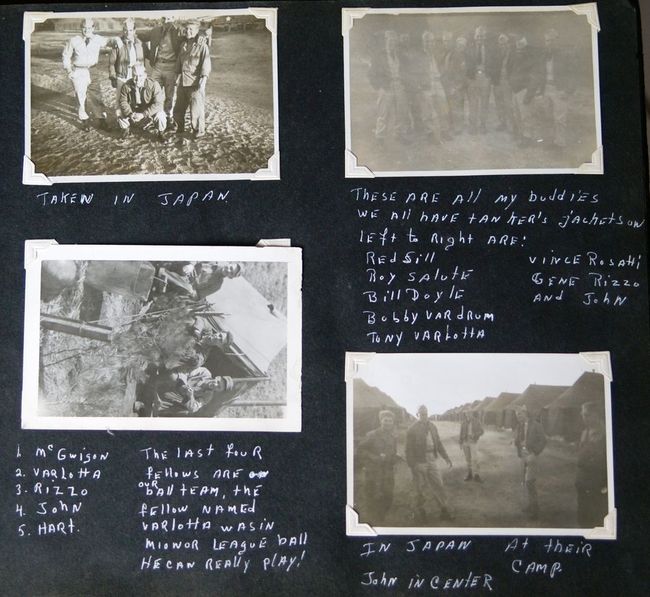 TAKEN IN JAPAN.
THESE ARE ALL MY buddies
WE ALL HAVE TANKER'S JACKETS ON
lEFT to RigHT ARE!
RED Sill
ROY SALUTE
Bill DOYLE
BobbY VARDRUM
TONY VARLOTTA
VINCE ROSATTi
GENE RIZZO
AND JOHN
1. McGWISON
2. VARLOTTA
3. RIZZO
4. JOHN
5. HART.
THE LAST fouR
fEllOWS ARE
OUR
bAll TEAM, THE
fEllOW NAMED
VARLOTTA WAS IN
MIONOR LEAGUE bAll
HE CAN REALLY PLAY!
IN JAPAN At THEIR
CAMP.
JOHN IN CENTER